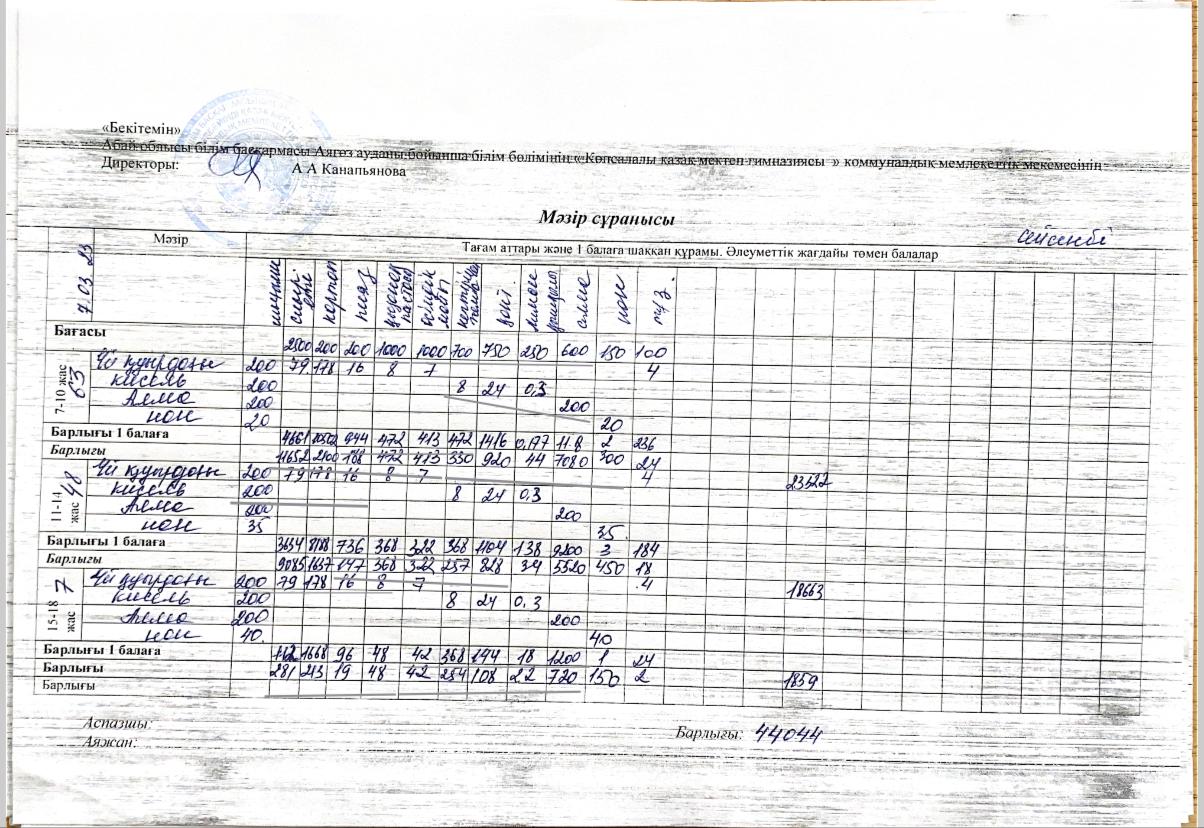 «Бекітемін»
Абай облысы білім басқармасы Аягөз ауданы бойынша білім бөлімінің « Көпсалалы қазақ мектеп гимназиясы » коммуналдық мемлекеттік мекемесінің
Директоры: А А Канапьянова
Мәзір сұранысы
сейсенбі
7.03.23 Мәзір Тағам аттары және 1 балаға шаққан құрамы. Әлеуметтік жағдайы төмен балалар
сиыр еті картоп пияз өсімдік майы шай лимон алма нан тұз.
Бағасы
2500 200 200 1000 1000 700 750 250 600 150 100
7-10 жас 63
Үй қуырдағы 200 79 178 16 8 7 4
кисель 200 8 24 0,3
Алма 200 200
нан 20 20
Барлығы 1 балаға 4661 944 472 413 472 1416 0,177 11.8 2 236
Барлығы 11652 2100 188 472 413 330 920 44 7080 300 24
23622
11-14 жас 48
Үй қуырдағы 200 79 178 16 8 7 4
кисель 200 8 24 0,3
Алма 200 200
нан 35 35
Барлығы 1 балаға 3634 8188 736 368 322 368 1104 138 9200 3 184
Барлығы 9085 1637 147 368 322 257 828 34 5520 450 18
18663
15-18 жас 7
Үй қуырдағы 200 79 178 16 8 7 4
кисель 200 8 24 0,3
Алма 200 200
нан 40. 40
Барлығы 1 балаға 1668 96 48 42 368 144 18 1200 1 24
Барлығы 281 213 19 48 42 254 108 22 720 150 2
1859
Барлығы
Аспазшы:
Аяжан:
Барлығы: 44044